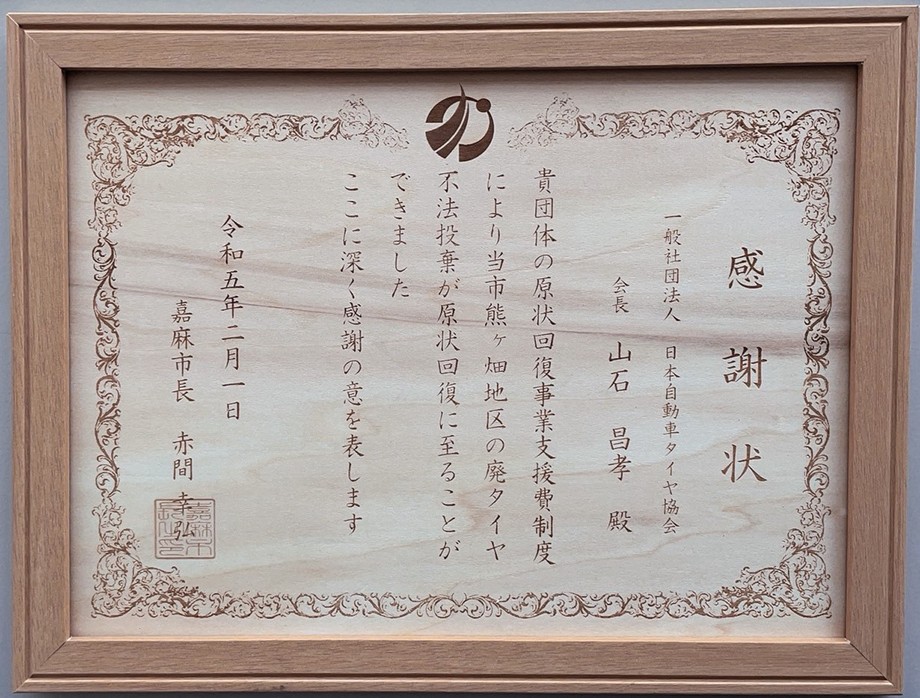 感謝状
一般社団法人 日本自動車タイヤ協会
会長 山石 昌孝 殿
貴団体の原状回復事業支援費制度
により当市熊ヶ畑地区の廃タイヤ
不法投棄が原状回復に至ることが
できました
ここに深く感謝の意を表します
令和五年二月一日
嘉麻市長 赤間 幸弘
嘉麻市長之印